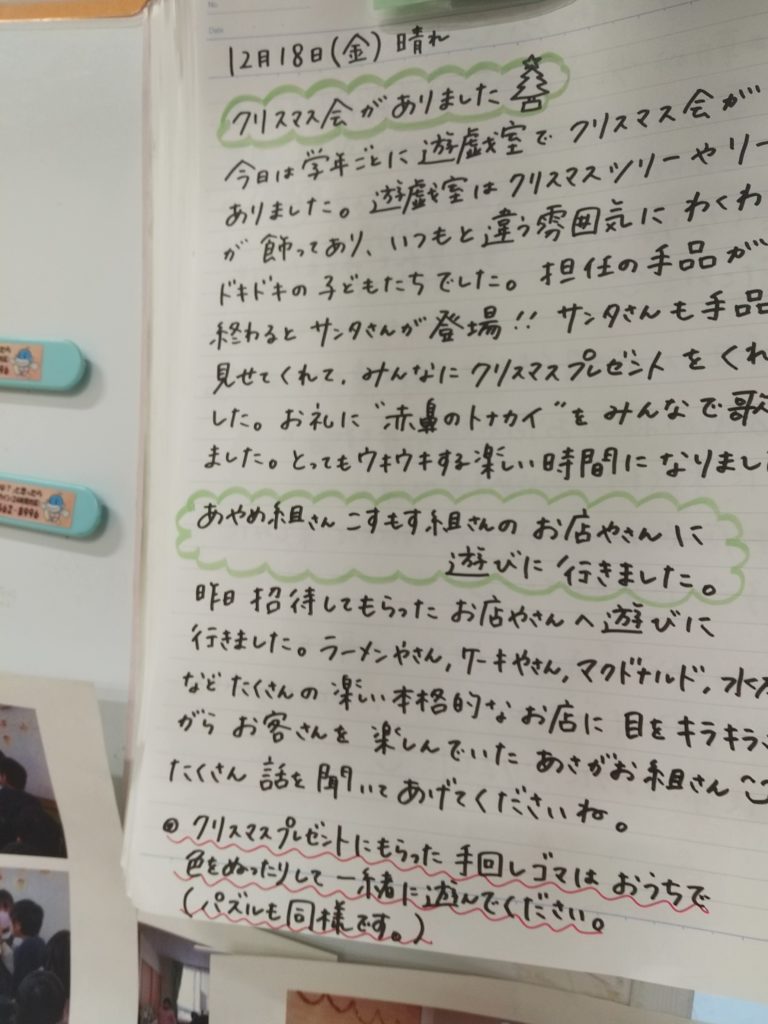 No.
Date
12月18日(金) 晴れ
クリスマス会がありました
今日は学年ごとに遊戯室でクリスマス会が
ありました。遊戯室はクリスマスツリーやリー
が飾ってあり、いつもと違う雰囲気にわくわ
ドキドキの子どもたちでした。担任の手品が
終わるとサンタさんが登場!! サンタさんも手品
見せてくれて、みんなにクリスマスプレゼントをくれ
した。お礼に"赤鼻のトナカイ"をみんなで歌
ました。とってもウキウキする楽しい時間になりまし
あやめ組さんこすもす組さんのお店やさんに
遊びに行きました。
昨日招待してもらったお店やさんへ遊びに
行きました。ラーメンやさん,ケーキやさん,マクドナルド,水
などたくさんの楽しい本格的なお店に目をキラキラ
がらお客さんを楽しんでいたあさがお組さん
たくさん話を聞いてあげてくださいね。
クリスマスプレゼントにもらった手回しゴマはおうちで
色をぬったりして一緒に遊んでください。
(パズルも同様です。)
562-8996